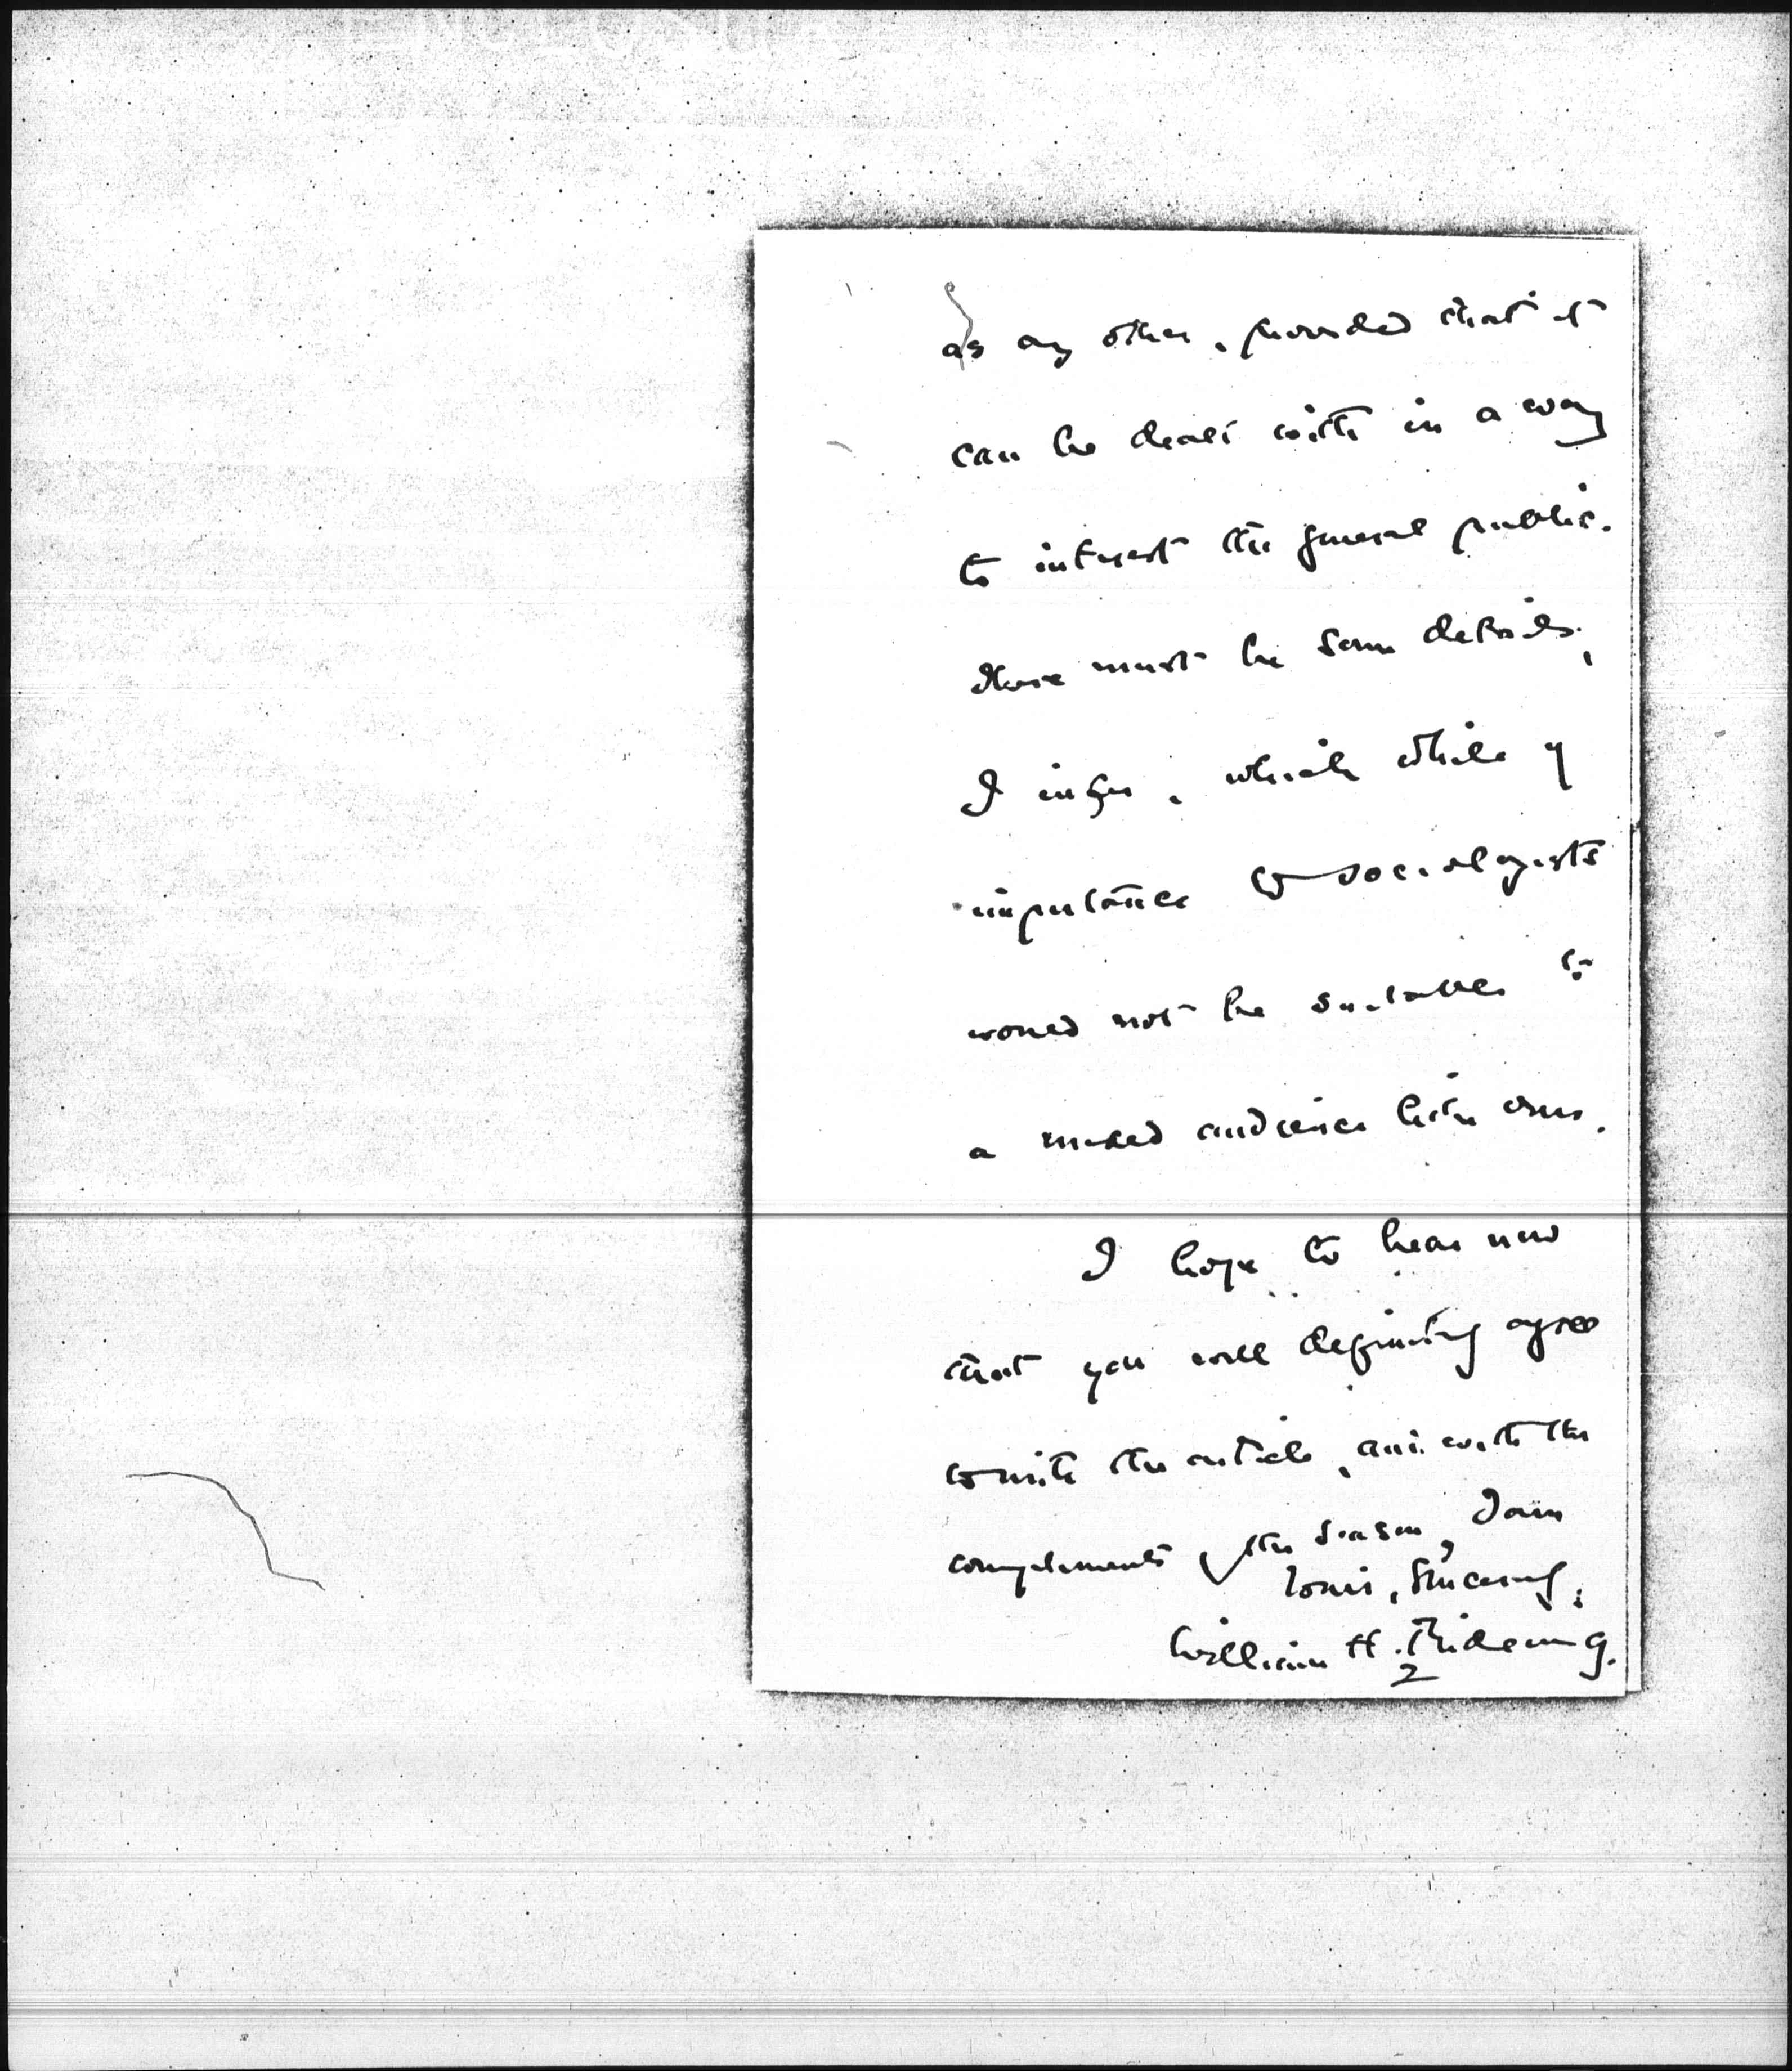 as any other, provided that it
can be dealt with in a way
to interest the general public.
There must be some details,
I infer, which while of
importance to sociologists
would not be suitable to
a mixed audience like ours.
I hope to hear now
that you will definitely agree
to write the article, and with the
compliments of the season, I am
Yours, Sincerely,
William H. Rideing.
2